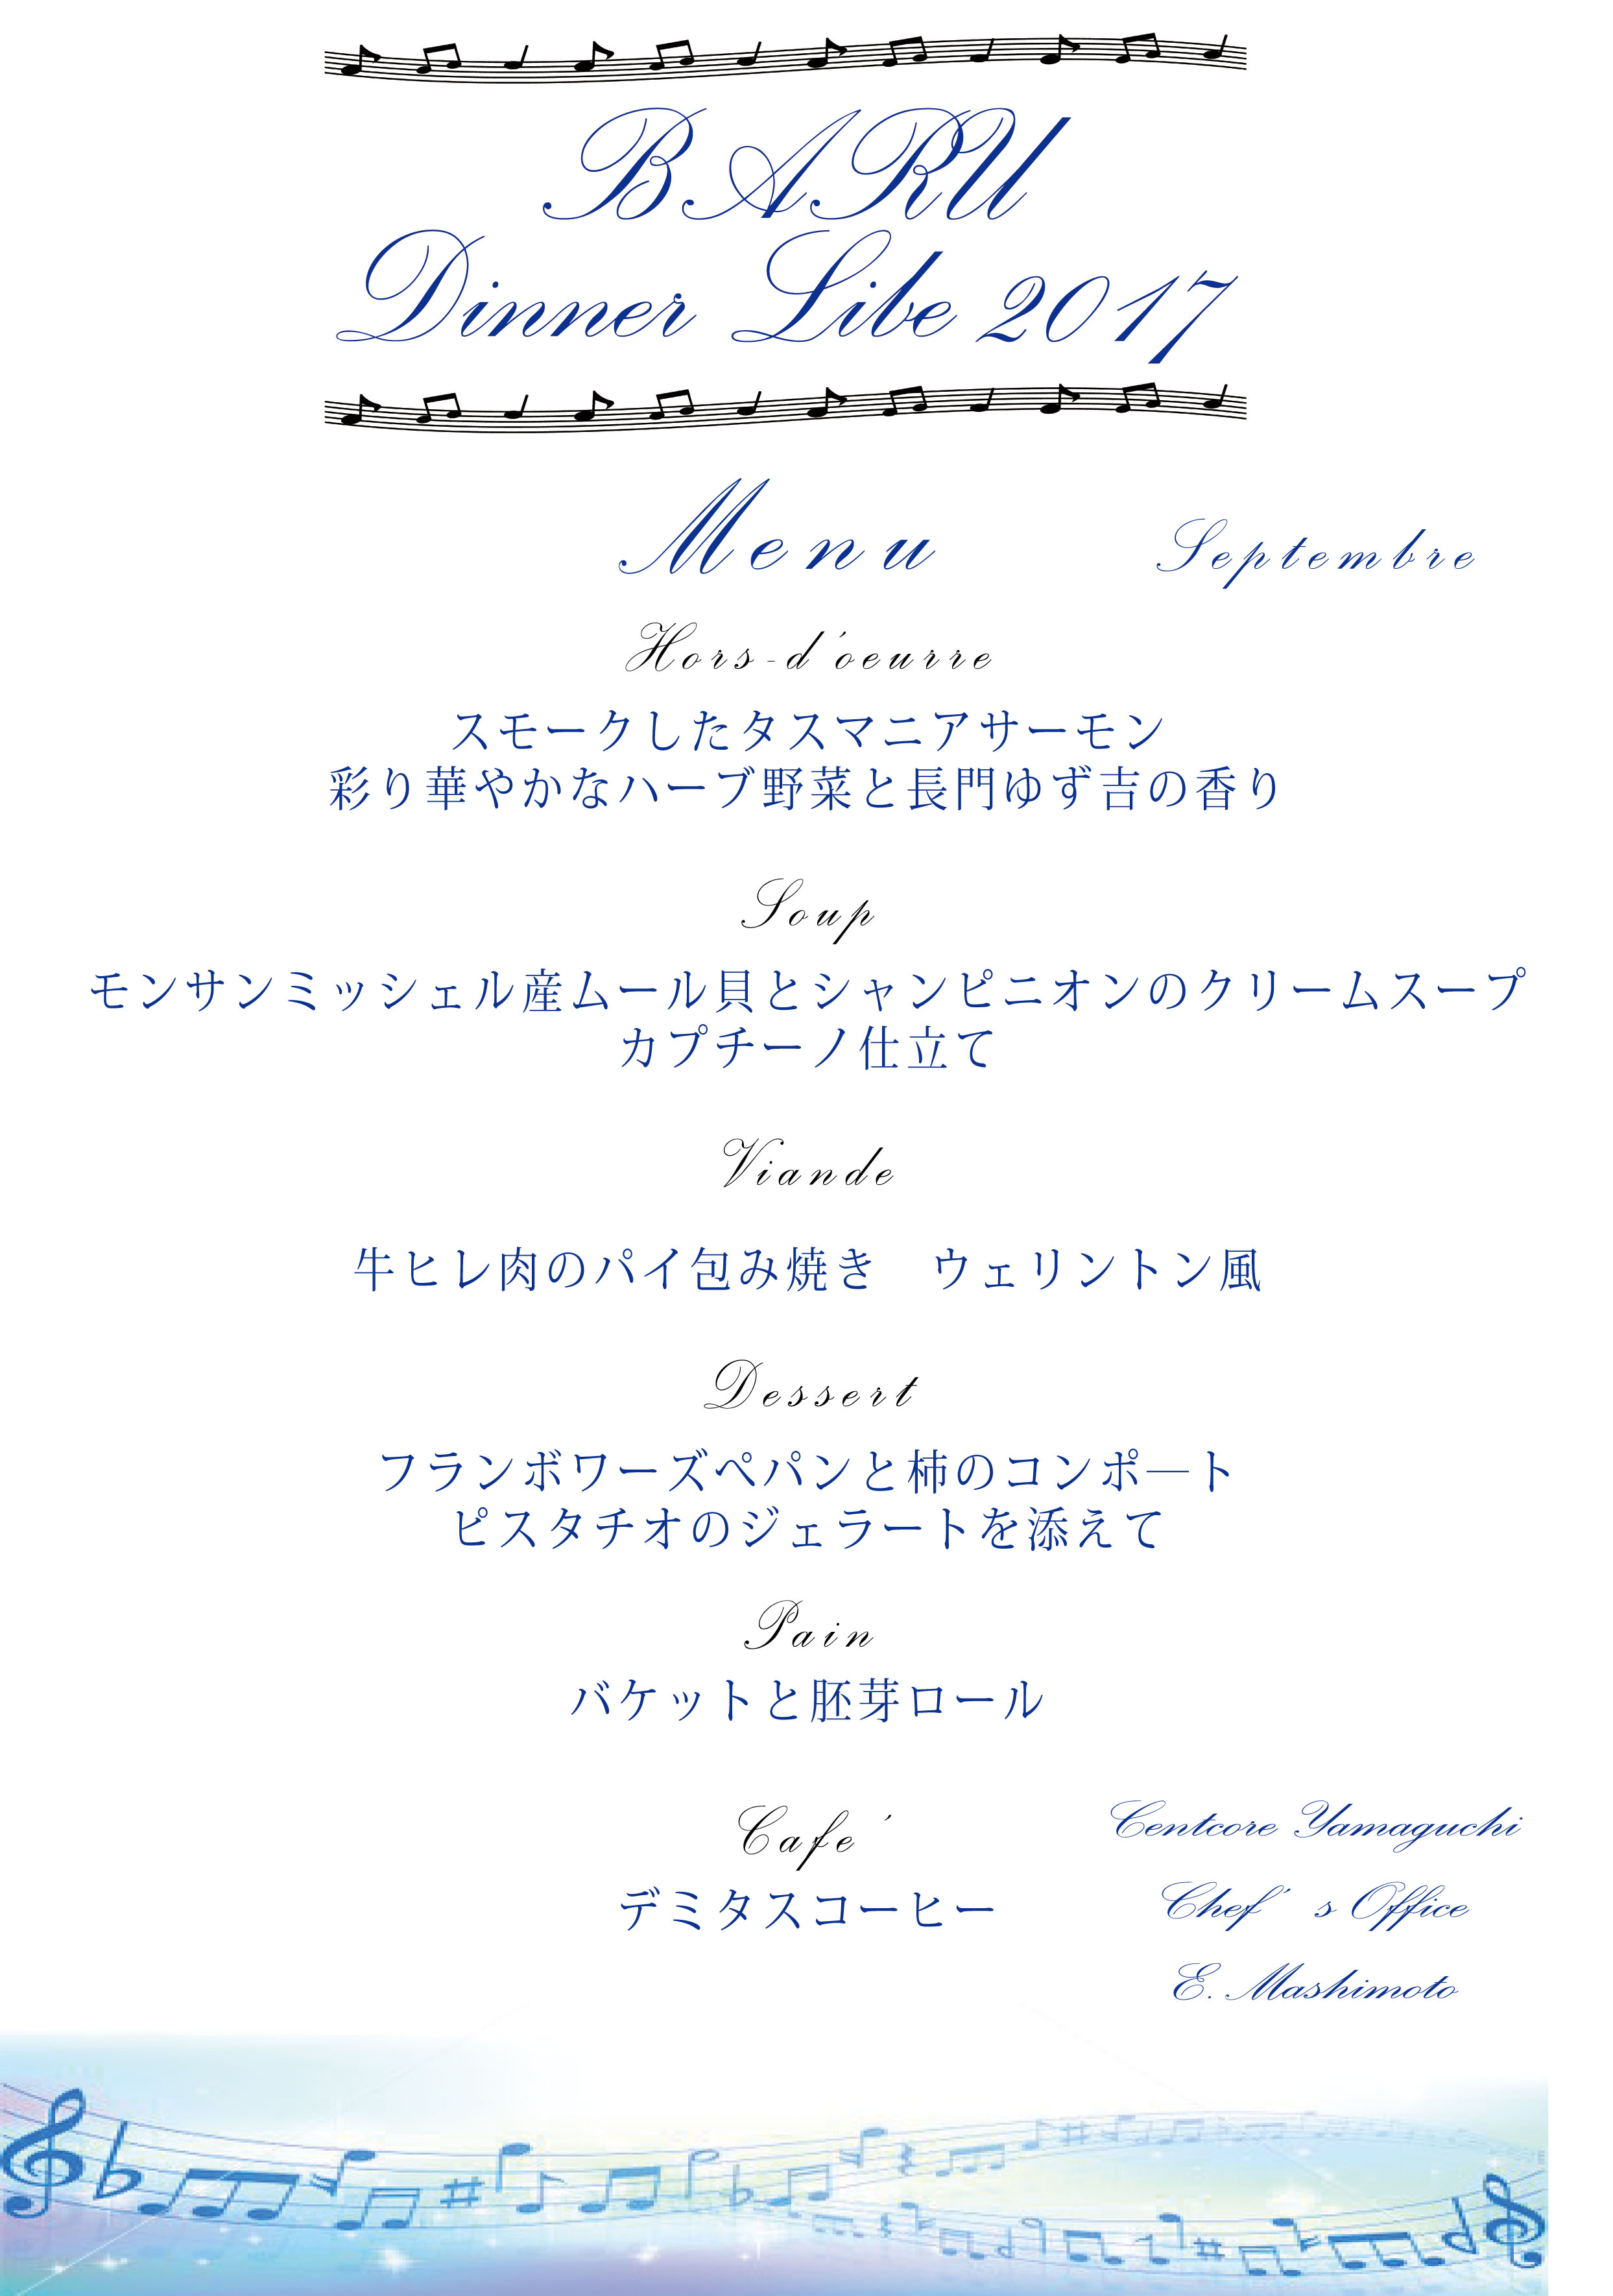 BARU
Dinner Libe 2017
Menu
Septembre
Hors-d'oeurre
スモークしたタスマニアサーモン
彩り華やかなハーブ野菜と長門ゆず吉の香り
Soup
モンサンミッシェル産ムール貝とシャンピニオンのクリームスープ
カプチーノ仕立て
Viande
牛ヒレ肉のパイ包み焼き　ウェリントン風
Dessert
フランボワーズペパンと柿のコンポ―ト
ピスタチオのジェラートを添えて
Pain
バケットと胚芽ロール
Cafe´
デミタスコーヒー
Centcore Yamaguchi
Chef’s Office
E. Mashimoto